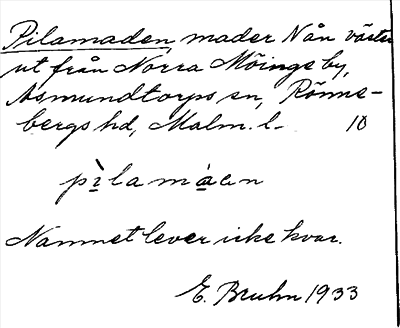 Pilamaden, mader N ån väster
ut från Norra Möinge by,
Asmundtorps sn, Rönne-
bergs hd, Malm. l. 10
pìlamáən
Namnet lever icke kvar.
E. Bruhn 1933